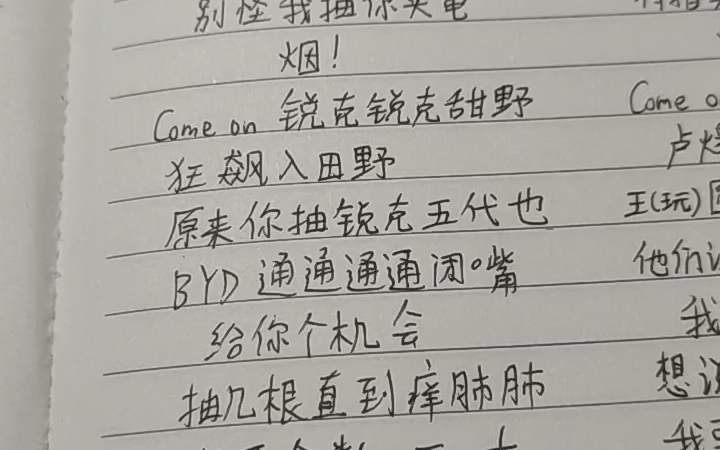 别怪我抽你
烟！
Come on 锐克锐克甜野
狂飙入田野
原来你抽锐克五代也
BYD通通通通闭嘴
给你个机会
抽几根直到痒肺肺
Come o
卢
王(玩)
他们
我
想
我